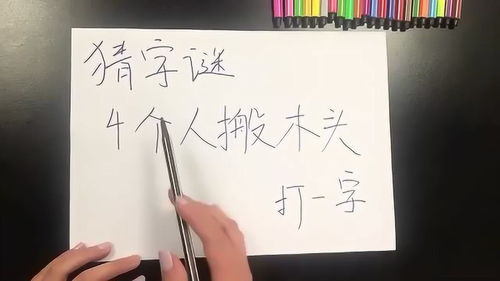 猜字谜
4个人搬木头
打一字